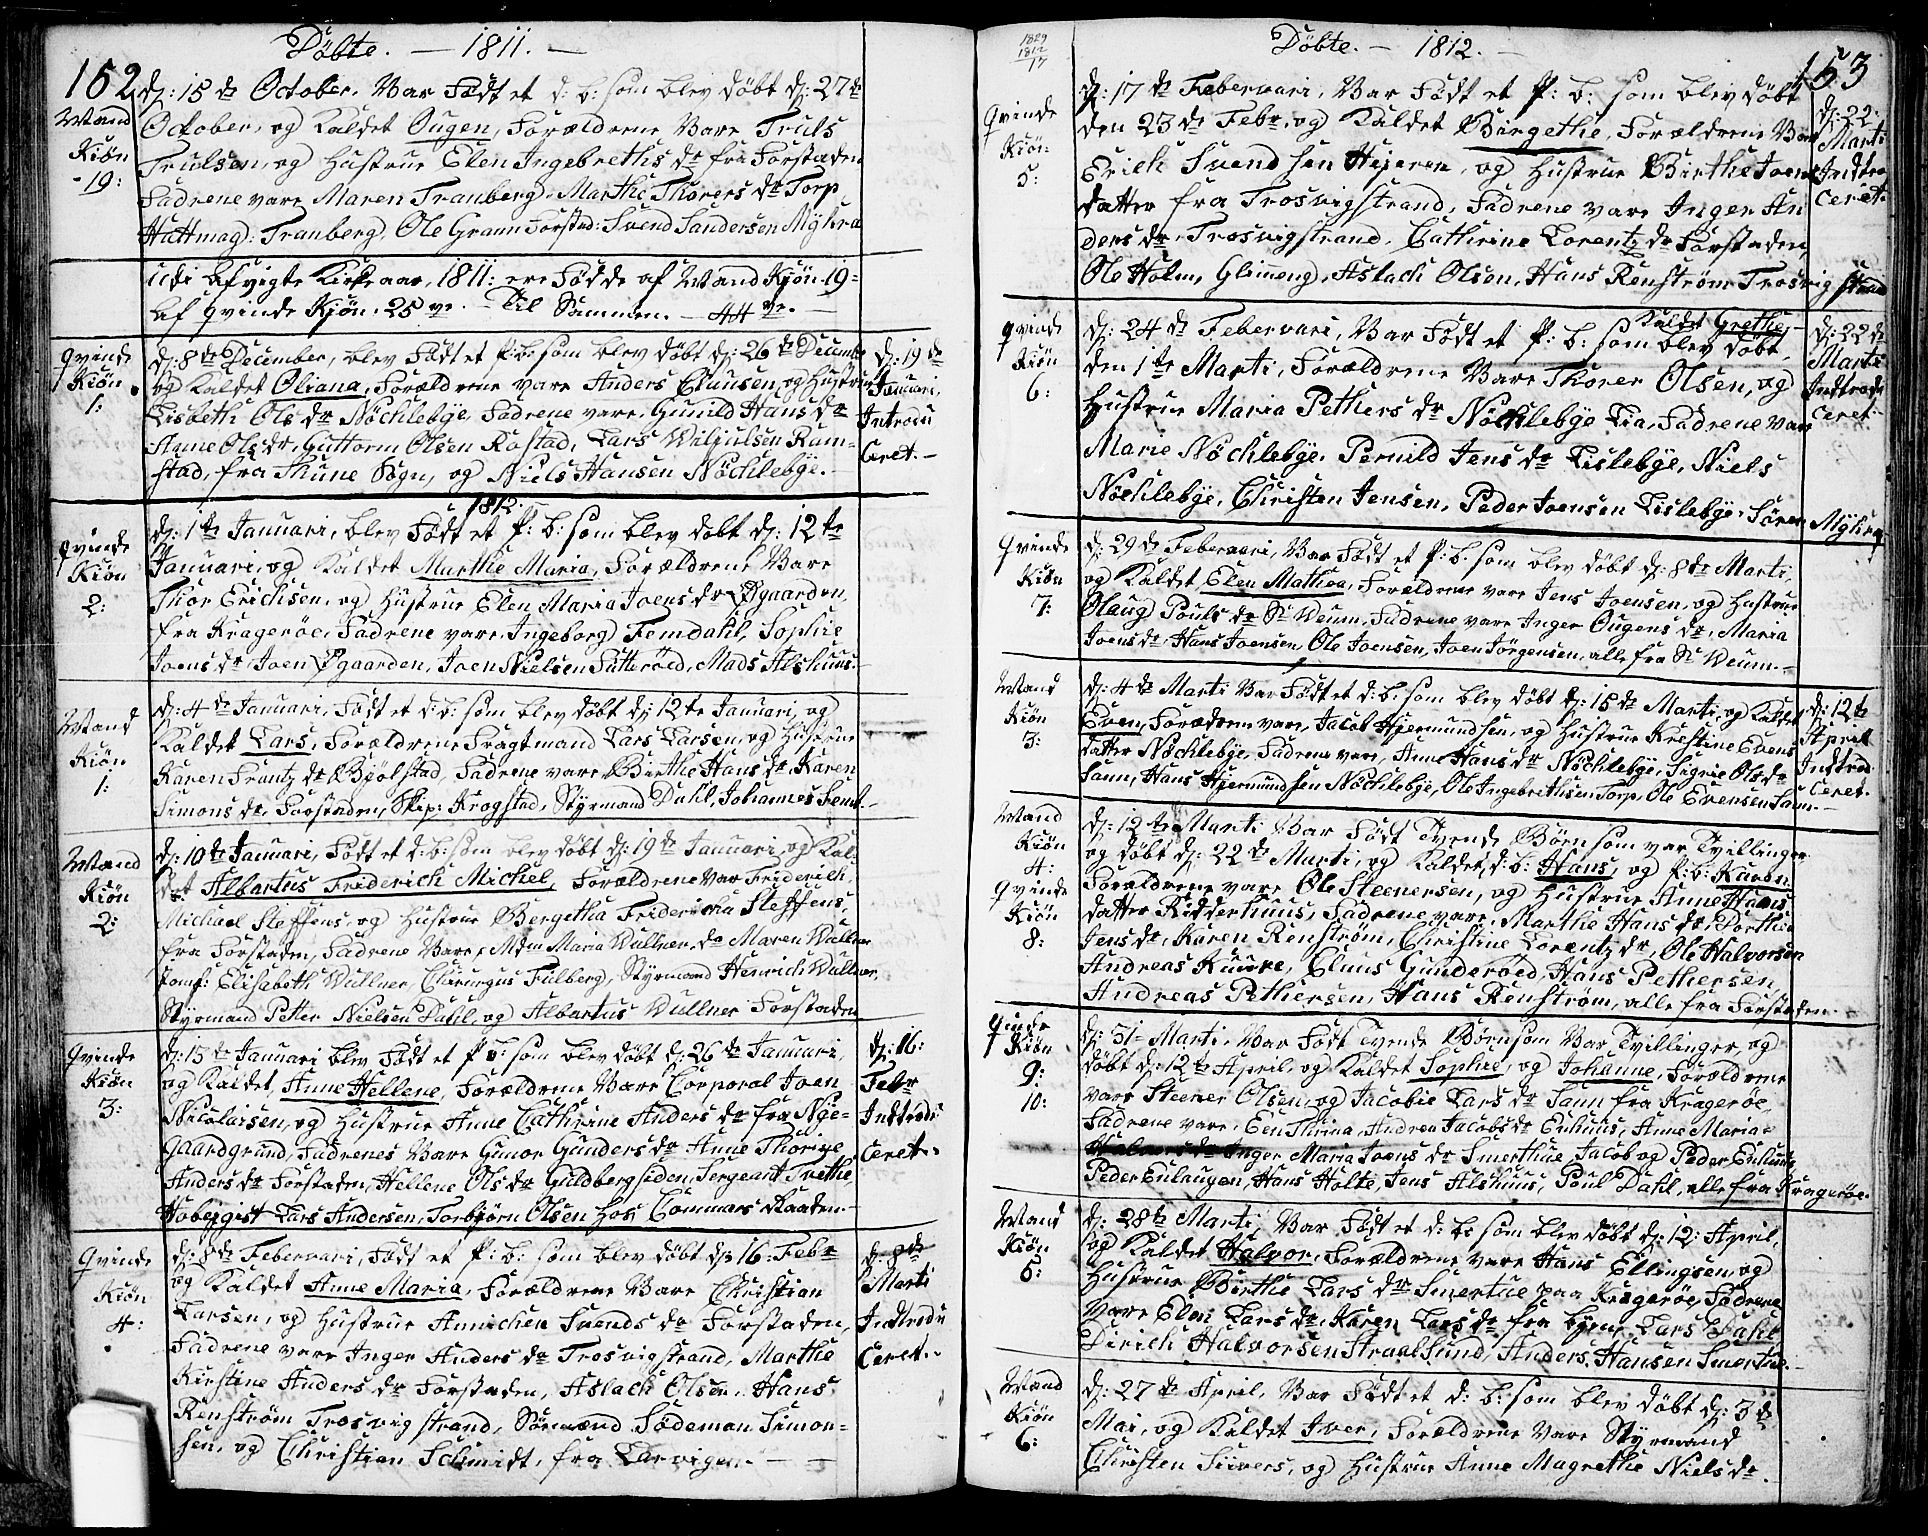 Döbte. — 1811. —
152
Mand
Kiøn
19:
d: 15 de October, Var Födt et d: b: som blev döbt d: 27 de
October, og Kaldet Ougen, Forældrene Vare Truls
Trulsen, og Hustrue Elen Ingebreths dr fra Forstaden
Fadrene vare Maren Tranberg, Marthe Thorers dr Torp
Hattmag: Tranberg, Ole Graun Forstad: Svend Sandersen Myhra
udi Afvigte Kirkeaar, 1811: ere Födde af Mand Kiön 19 =
Af Qvinde Kiön, 25 ve. Til Sammen. — 44 ve. —
Qvinde
Kiön
1:
d: 8 de December, blev Födt et P: b: som blev döbt d: 26 de Decembr
og Kaldet Oliana, Forældrene vare Anders Clausen, og Hustrue
Lisbeth Ols dr Nöchlebye, Fadrene vare, Gunild Hans dr
Anne Ols dr, Guttorm Olsen Rostad, Lars Wiljulsen Ram-
stad, fra Thune Sogn, og Niels Hansen Nöchlebye. —
d: 19 de
Januari,
Introdu
Ceret. —
1812.
Qvinde
Kiön
2:
d: 1 te Januari, blev Födt et P: b: som blev döbt d: 12 te
Januari, og Kaldet Marthe Maria, Forældrene Vare
Thor Erichsen, og Hustrue Elen Maria Joens dr Øgaarden,
fra Kragerøe, Fadrene vare, Ingeborg Femdahl, Sophie
Joens dr Joen Øgaarden, Joen Nielsen Sutterøed, Mads Alshuus. —
Mand
Kiøn
1:
d: 4 de Januari, Födt et d: b: som blev döbt d: 12 te Januari, og
Kaldet Lars, Forældrene Fragtmand Lars Larsen, og Hustrue
Karen Frantz dr Bjölstad, Fadrene vare Birthe Hans dr, Karen
Simons dr, Forstaden, Skip: Krogstad, Styrmand Dahl, Johannes Femt. —
Mand
Kiøn
2:
d: 10 de Januari, Födt et d: b: som blev döbt d: 19 de Januari, og Kal-
det Albartus Friderich Michel, Forældrene Var Friderich
Michael Steffens, og Hustrue Bergetha Fridericha Steffens,
fra Forstaden, Fadrene Vare, Mdm Maria Wullner, do Maren Wullner
Jomf: Elisabeth Wullner, Chirurgus Fulberg, Styrmand Henrich Wullner,
Styrmand Petter Nielsen Dahl, og Albartus Wullner Forstaden
Qvinde
Kiøn
3:
d: 15 de Januari blev Födt et P b: som blev döbt d: 26 de Januari,
og Kaldet, Anne Hellene, Forældrene Vare Corporal Joen
Nicolaisen, og Hustrue Anne Cathrine Anders dr fra Nye-
gaardgrund, Fadrenes Vare Gunor Gunders dr Anne Thorine
Anders dr Forstaden, Hellene Ols dr Guldbergsiden, Sergeant Trethe,
Hobergist Lars Andersen, Torbjørn Olsen hos Commars Staaden. —
d: 16:
Febr
Indtrodu
Ceret. -
Qvinde
Kiøn
4:
d: 8 de Febervari, Födt et P: b: som blev döbt d: 16: Febr
og Kaldet Anne Maria, Forældrene Vare Christian
Larsen, og Hustrue Annichen Svends dr Forstaden,
Fadrene vare Inger Anders dr Trosvigstrand, Marthe
Kirstine Anders dr Forstaden, Aslach Olsen, Hans
Renström Trosvigstrand, Sömænd Södeman Simon-
sen, og Christian Schmidt, fra Larvigen. — —
d: 8 de
Marti
Indtrodu
Ceret. -
1829
1812
17
Döbte. — 1812. —
153
Qvinde
Kiøn
5:
d: 17 de Febervari, Var Födt et P: b: som blev döbt
den 23 de Febr, og Kaldet Birgethe, Forældrene Vare
Erich Svendsen Hejeren, og Hustrue Birthe Joens
datter fra Trosvigstrand, Fadrene vare Inger An
ders dr, Trosvigstrand, Cathrine Lorentz dr Forstaden,
Ole Holm, Glimeng, Aslach Olsen, Hans Renström Trosvigstrand
d: 22:
Marti
Indtro
Ceret
Qvinde
Kiøn
6:
Kaldet Grethe
d: 24 de Febervari, Var Födt et P: b: som blev döbt,
den 1 te Marti, Forældrene Vare Thorer Olsen, og
Hustrue Maria Pethers dr Nöchlebye Lia, Fadrene vare
Marie Nöchlebye, Pernild Jens dr Lislebye, Niels
Nöchlebye, Christen Jensen, Peder Joensen Lislebye, Sören Myhra
d: 22 de
Marti
Indtrodu
Ceret.
Qvinde
Kiøn
7:
d: 29 de Febervari, Var Födt et P: b: som blev döbt d: 8 de Marti
og Kaldet Elen Mathea, Forældrene vare Jens Joensen, og Hustrue
Olaug Pouls dr St Weum, Fadrene vare Inger Ougens dr, Maria
Joens dr, Hans Joensen, Ole Joensen, Joen Jörgensen, alle fra St Weum. —
Mand
Kiön
3:
d: 4 de Marti Var Födt et d: b: som blev döbt d: 15 de Marti, og Kaldet
Even, Forældrene vare, Jacob Hjermundsen, og Hustrue Krestine Evens
datter Nöchlebye, Fadrene vare, Anne Hans dr Nöchlebye, Sigrie Ols dr
Sann, Hans Hjermundsen Nöchlebye, Ole Ingebrethsen Torp, Ole Evensen Sann. —
d: 12 te
April
Indtrod
Ceret. -
Mand
Kiön
4:
Qvinde
Kiön
8:
d: 12 te Marti Var Födt Tvende Börn som var Tvillinger
og döbt d: 22 de Marti, og Kaldet, d: b: Hans, og P: b: Karen
Forældrene vare Ole Steenersen, og Hustrue Anne Hans
datter Ridderhuus, Fadrene vare, Marthe Hans dr, Dorthea
Jens dr, Karen Renström, Christine Lorentz dr, Ole Halvorsen
Andreas Kuure, Cluus Gunderöed, Hans Pethersen,
Andreas Pethersen, Hans Renström, alle fra Forstaden. —
Qvinde
Kiön
9:
10:
d: 31 - Marti, Var Födt Tvende Börn som Var Tvillinger, og
döbt d: 12 te April, og Kaldet Sophie, og Johanne, Forældrene
vare Steener Olsen, og Jacobie Lars dr Sann fra Kragerøe,
Fadrene vare, Een Thrina, Andrea Jacobs dr Enhuus, Anne Maria =
Inger Maria Joens dr Smerthue, Jacob og Peder Enhuus,
Peder Enhaugen, Hans Holte, Jens Alshuus, Poul Dahl, alle fra Kragerøe.
Mand
Kiön
5:
d: 28 de Marti, Var Födt et d: b: som blev döbt d: 12: April,
og Kaldet Halvor, Forældrene vare Hans Ellingsen, og
Hustrue Birthe Lars dr Smertue paa Kragerøe, Fadrene
Vare Elen Lars dr, Karen Lars dr fra byen, Lars Dahl
Dirich Halvorsen Straalsund, Anders Hansen Smertue. —
Mand
Kiön
6:
d: 27 de April, Var Födt et d: b: som blev döbt d: 3 de
Mai, og Kaldet Iver, Forældrene Vare Styrmand
Christen Siivers, og Hustrue Anne Magrethe Niels dr.